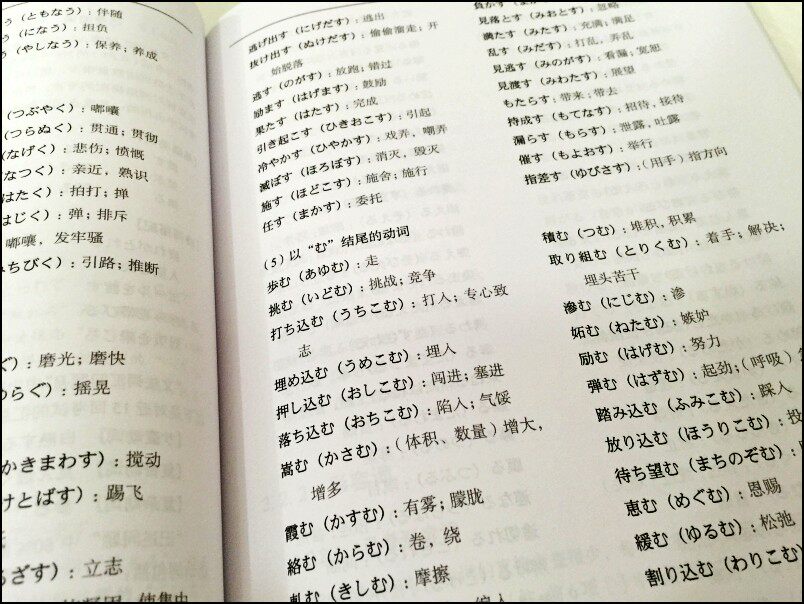 （ともなう）：伴随
（になう）：担负
（やしなう）：保养；养成
（つぶやく）：嘟囔
（つらぬく）：贯通；贯彻
（なげく）：悲伤；愤慨
なつく）：亲近，熟识
はたく）：拍打；掸
はじく）：弹；排斥
嘟囔，发牢骚
みちびく）：引路；推断
ぐ）：磨光；磨快
らぐ）：摇晃
かきまわす）：搅动
けとばす）：踢飞
ざす）：立志
使集中
逃げ出す（にげだす）：逃出
抜け出す（ぬけだす）：偷偷溜走；开
始脱落
逃す（のがす）：放跑；错过
励ます（はげます）：鼓励
果たす（はたす）：完成
引き起こす（ひきおこす）：引起
冷やかす（ひやかす）：戏弄，嘲弄
滅ぼす（ほろぼす）：消灭，毁灭
施す（ほどこす）：施舍；施行
任す（まかす）：委托
（5）以“む”结尾的动词
歩む（あゆむ）：走
挑む（いどむ）：挑战；竞争
打ち込む（うちこむ）：打入；专心致
志
埋め込む（うめこむ）：埋入
押し込む（おしこむ）：闯进；塞进
落ち込む（おちこむ）：陷入；气馁
嵩む（かさむ）：（体积、数量）增大，
增多
霞む（かすむ）：有雾；朦胧
絡む（からむ）：卷，绕
軋む（きしむ）：摩擦
負かす
見落とす（みおとす）：忽略
満たす（みたす）：充满；满足
乱す（みだす）：打乱，弄乱
見逃す（みのがす）：看漏；宽恕
見渡す（みわたす）：展望
もたらす：带来；带去
持成す（もてなす）：招待，接待
漏らす（もらす）：泄露，吐露
催す（もよおす）：举行
指差す（ゆびさす）：（用手）指方向
積む（つむ）：堆积，积累
取り組む（とりくむ）：着手；解决；
埋头苦干
滲む（にじむ）：渗
妬む（ねたむ）：嫉妒
励む（はげむ）：努力
弾む（はずむ）：起劲；（呼吸）
踏み込む（ふみこむ）：踩入
放り込む（ほうりこむ）：投
待ち望む（まちのぞむ）：
恵む（めぐむ）：恩赐
緩む（ゆるむ）：松弛
割り込む（わりこむ）